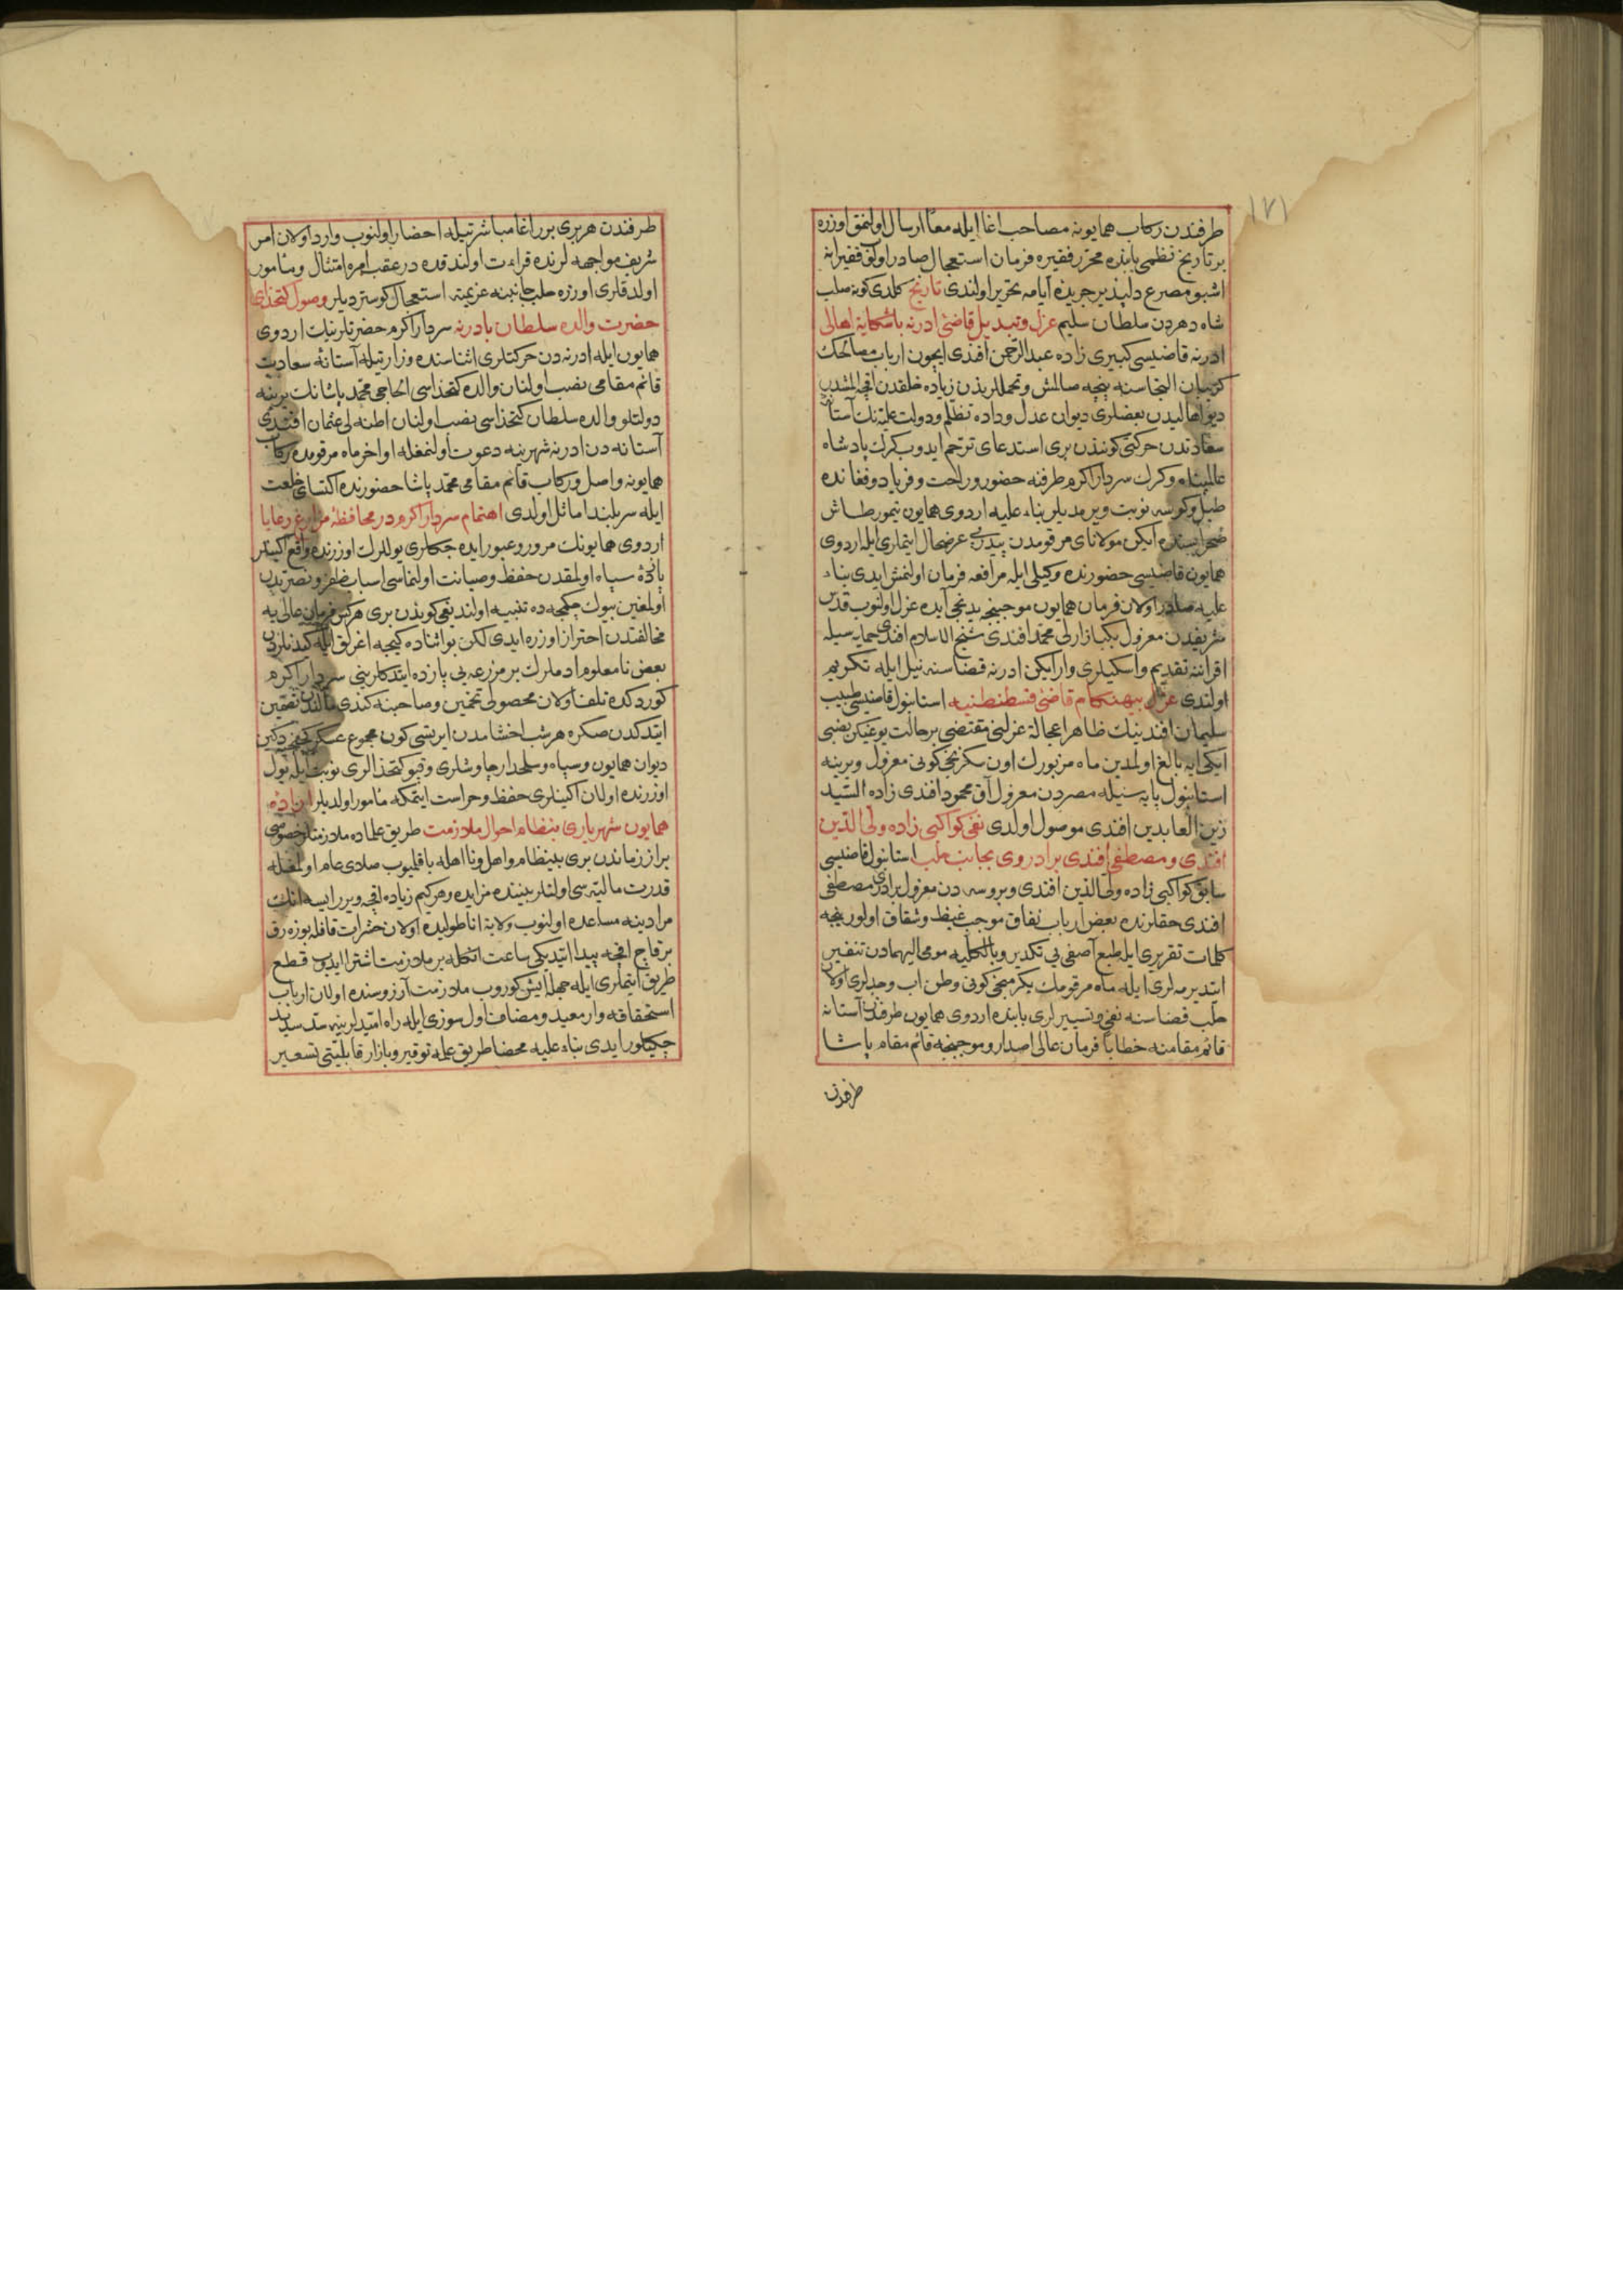 ١٧١
طرفندن ركاب همايونه مصاحب اغا ايله معاً ارسال اولنمق اوزره
بر تاريخ نظمى بابنده محرر فقيره فرمان استعجال صادر اولوب فقيرانه
اشبو مصرع دلپذير جريدۀ ايامه تحرير اولندى تاريخ كلدى كوپه صلب
شاه دهردن سلطان سليم عزل وتبديل قاضئ ادرنه باشكاية اهالى
ادرنه قاضيسى كبيرى زاده عبدالرحمن افندى ايچون ارباب مصالحك
كريبان التجاسنه پنجه صالمش وتحمللريندن زياده خلقدن اقچه المشدر
ديو اهاليدن بعضلرى ديوان عدل وداده تظلم ودولت عليه نك آستانۀ
سعادتدن حركتى كونندن برى استدعاى ترحم ايدوب كرك پادشاه
عالمپناه وكرك سردار اكرم طرفنه حضور وراحت وفرياد وفغانده
طبل وكوسه نوبت ويرمديلر بناء عليه اردوى همايون تيمورطاش
صحراسنده ايكن مولاناى مرقومدن عرضحال ايتمارى ايله اردوى
همايون قاضيسى حضورنده وكيلى ايله مرافعه فرمان اولنمش ايدى بناء
عليه صادر اولان فرمان همايون موجبنجه يدنجى آيده عزل اولنوب قدس
شريفدن معزول بكبازارلى محمد افندى شيخ الاسلام افندى حمايه سيله
اقراننه تقديم واسكيلرى وار ايكن ادرنه قضاسنه نيل ايله تكريم
اولندى عزل بيهنكام قاضئ قسطنطنيه استانبول قاضيسى طبيب
سليمان افندينك ظاهرا عجالة عزلنى مقتضى بر حالت يوغيكن نصبى
ايكى ايه بالغ اولمدين ماه مزبورك اون سكزنجى كونى معزول ويرينه
استانبول پايه سيله مصردن معزول آق محمود افندى زاده السيد
زين العابدين افندى موصول اولدى نفى كواكبى زاده ولى الدين
افندى ومصطفى افندى برادر وى بجانب حلب استانبول قاضيسى
سابق كواكبى زاده ولى الدين افندى وبروسه دن معزول برادرى مصطفى
افندى حقلرنده بعض ارباب نفاق موجب غيظ وشقاق اولور نيجه
كلمات تقريرى ايله طبع آصفى يى تكدير وبالكليه مومى اليهمادن تنفير
ايتديرمه لرى ايله ماه مرقومك يكرمنجى كونى وطن اب وجدلرى اولان
حلب قضاسنه نفى وتسييرلرى بابنده اردوى همايون طرفندن آستانه
قائم مقامنه خطاباً فرمان عالى اصدار وموجبنجه قائم مقام پاشا
طرفندن
طرفندن هربرى بر اغا مباشرتيله احضار اولنوب وارد اولان امر
شريف مواجهه لرنده قراءت اولندقده درعقب امره امتثال ومأمور
اولدقلرى اوزره حلب جانبنه عزيمته استعجال كوسترديلر وصول كتخداى
حضرت والده سلطان بادرنه سردار اكرم حضرتلرينك اردوى
همايون ايله ادرنه دن حركتلرى اثناسنده وزارتيله آستانۀ سعادت
قائم مقامى نصب اولنان والده كتخداسى الحاجى محمد پاشانك يرينه
دولتلو والده سلطان كتخداسى نصب اولنان اطنه لى عثمان افندى
آستانه دن ادرنه شهرينه دعوت اولنمغله اواخر ماه مرقومده ركاب
همايونه واصل وركاب قائم مقامى محمد پاشا حضورنده اكتساى خلعت
ايله سربلند اماثل اولدى اهتمام سردار اكرم در محافظۀ مزارع رعايا
اردوى همايونك مرور وعبور ايده جكلرى يوللرك اوزرنده واقع اكينلر
پازدۀ سپاه اولمقدن حفظ وصيانت اولنماسى اسباب ظفر ونصرتدن
اولمغين بيوك چكمجه ده تنبيه اولنديغى كوندن برى هركس فرمان عالى يه
مخالفتدن احتراز اوزره ايدى لكن بو اثناده كيجه اغرلق ايله كيدنلردن
بعض نامعلوم ادملرك بر مزرعه يى پازده ايتدكلرينى سردار اكرم
كوردكده تلف اولان محصولى تخمين وصاحبنه كندى مالندن تضمين
ايتدكدن صكره هرشب اخشامدن ايرتسى كون مجموع عسكر كچنجه دكين
ديوان همايون وسپاه وسلحدار چاوشلرى وقپو كتخدالرى نوبت ايله يول
اوزرنده اولان اكينلرى حفظ وحراست ايتمكه مأمور اولديلر ارادۀ
همايون شهريارى بنظام احوال ملازمت طريق علماده ملازمتلر خصوصى
براز زماندن برى بينظام واهل ونااهله باقلميوب صلاى عام اولمغله
قدرت ماليه سى اولنلر بيننده مزايده وهركيم زياده اقچه ويرر ايسه انك
مرادينه مساعده اولنوب ولاية اناطوليده اولان حشرات قافله بوزه رق
برقاچ اقچه پيدا ايتديكى ساعت انكله بر ملازمت اشترا ايدوب قطع
طريق ايتملرى ايله جهله ايش كوروب ملازمت آرزوسنده اولان ارباب
استحقاقه وار معيد ومضاف اول سوزى ايله راه اميدلرينه سد سديد
چكيلور ايدى بناء عليه محضا طريق علمه توقير وبازار قابليتى تسعير